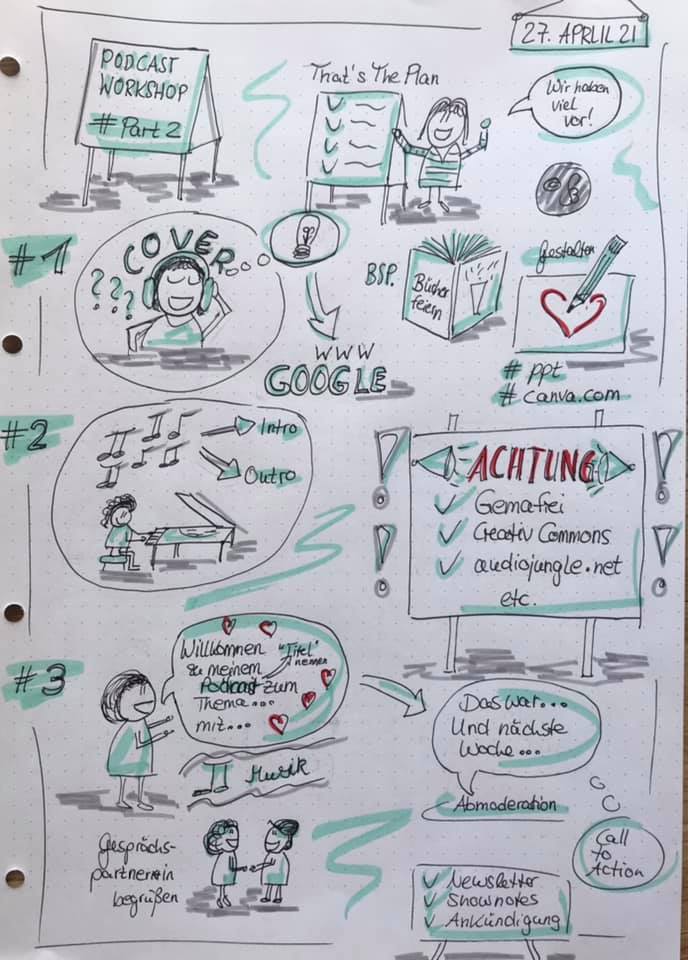 27. APRLIL 21
PODCAST
WORKSHOP
# Part 2
That's The Plan
Wir haben
viel
vor!
#1
COVER
???
BSP.
Bücher
feiern
Gestalten
WWW
GOOGLE
# ppt
# canva.com
#2
Intro
Outro
ACHTUNG
Gemafrei
Creativ Commons
audiojungle.net
etc.
#3
Willkommen "Titel"
zu meinem nennen
Podcast zum
Thema...
mit...
Musik
Das war...
Und nächste
Woche...
Abmoderation
Gesprächs-
partner*in
begrüßen
Call
to
Action
Newsletter
Shownotes
Ankündigung